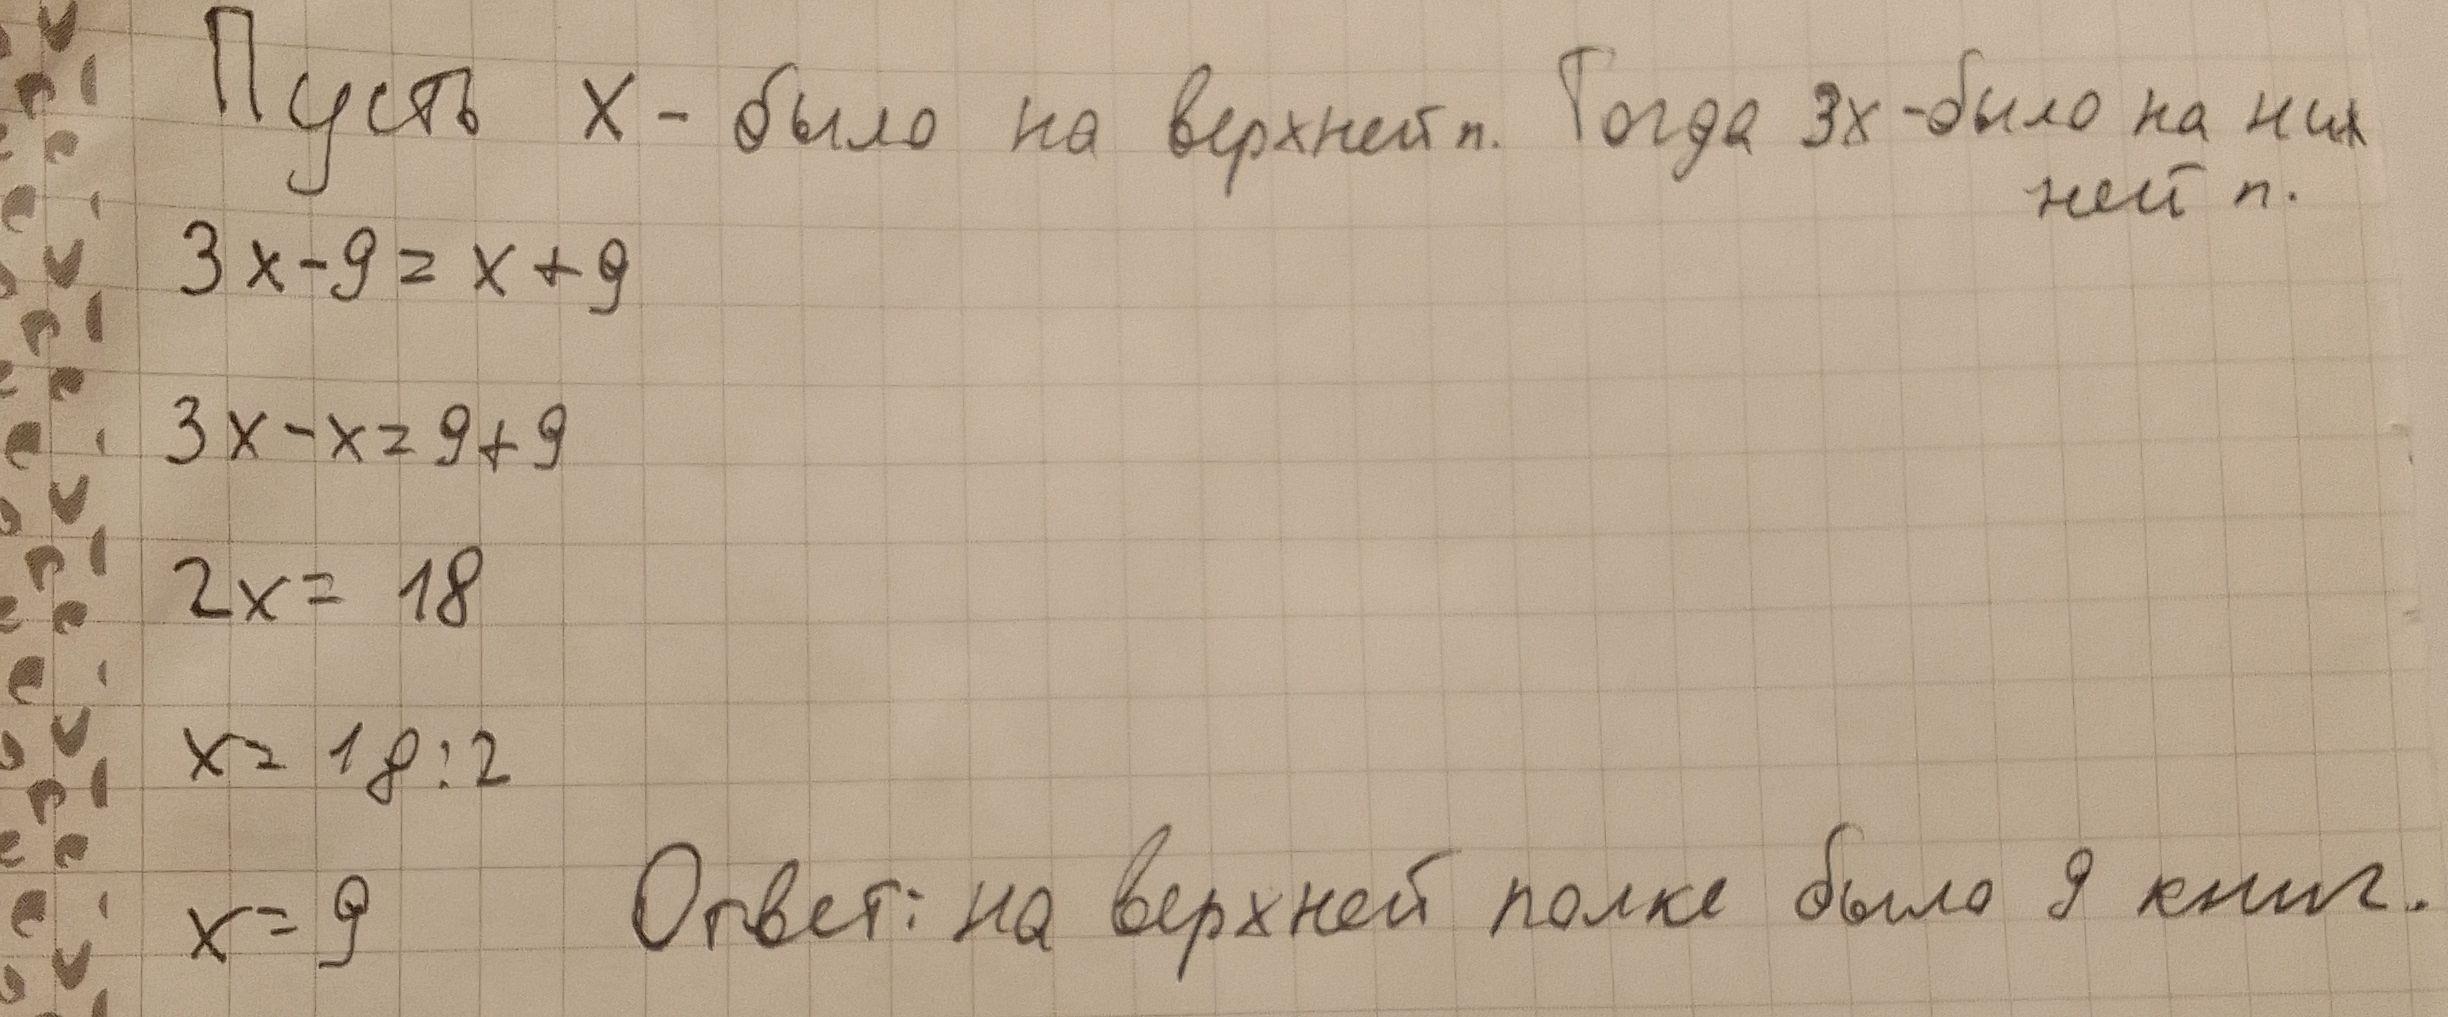 Пусть x - было на верхней п. Тогда 3x - было на ниж
ней п.
3x - 9 = x + 9
3x - x = 9 + 9
2x = 18
x = 18 : 2
x = 9 Ответ: на верхней полке было 9 книг.